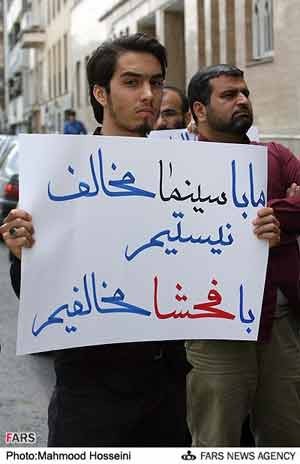 ما با سینما مخالف
نیستیم
با فحشا مخالفیم
FARS
Photo:Mahmood Hosseini
FARS NEWS AGENCY